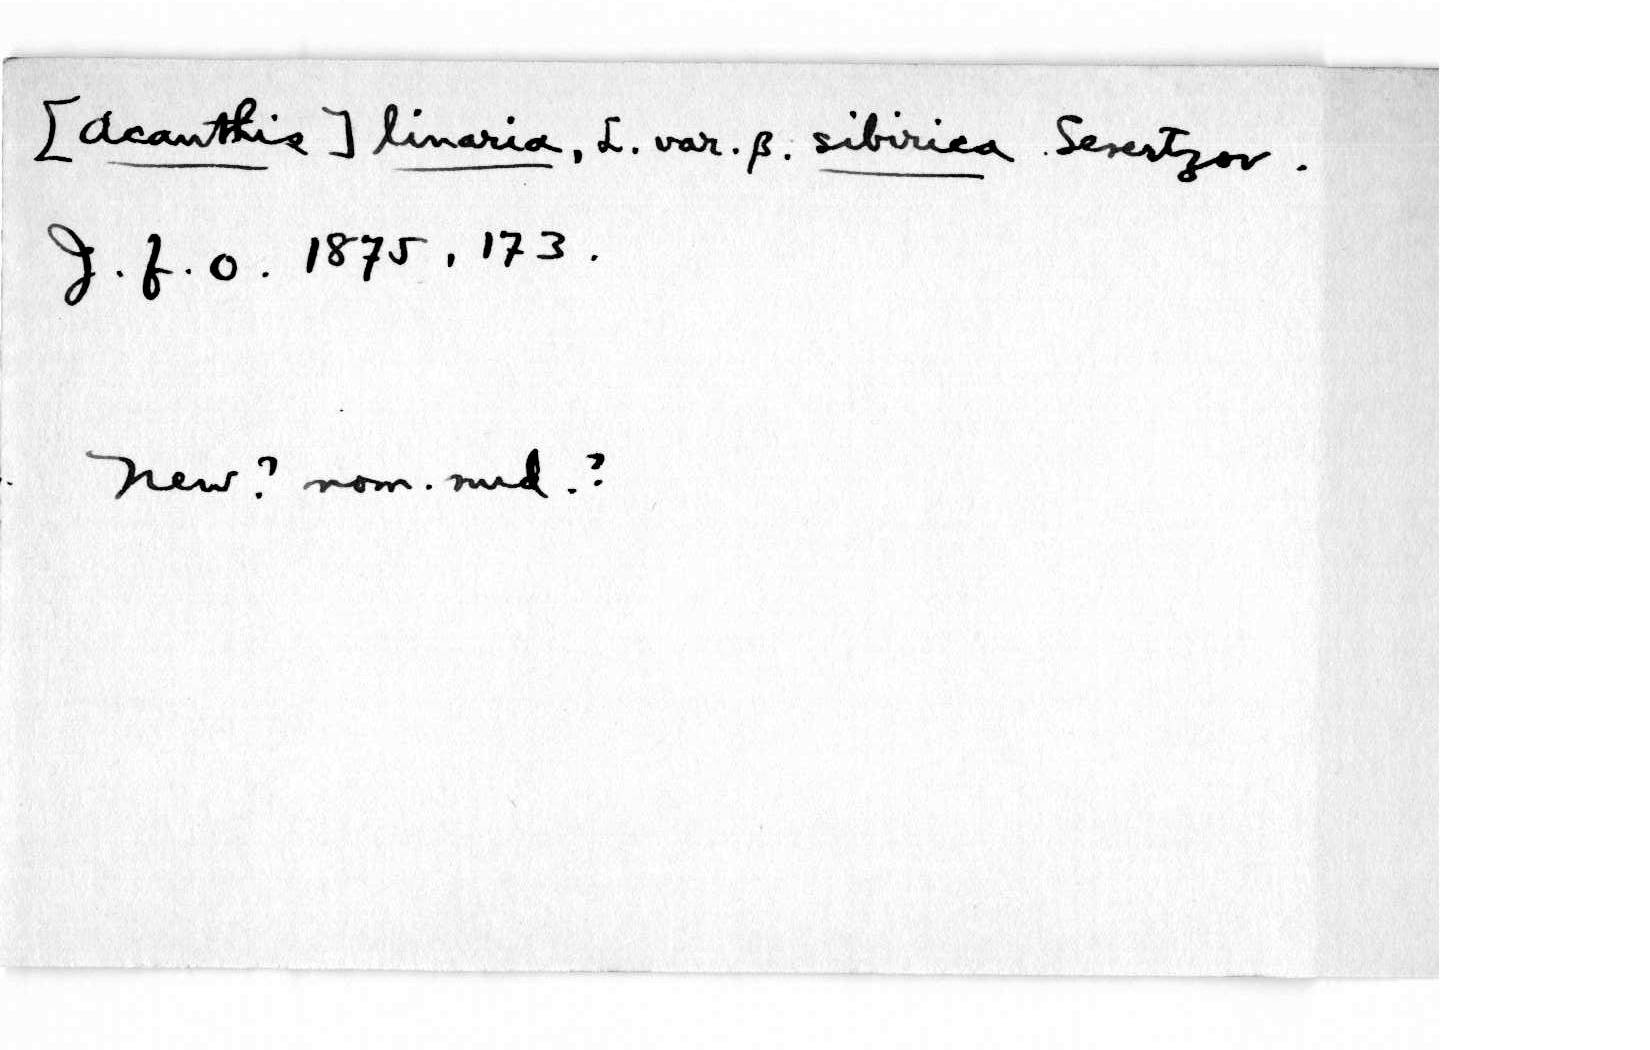 [Acanthis] linaria, L. var. β. sibirica Severtzov.
J. f. O. 1875, 173.
New? nom. nud.?